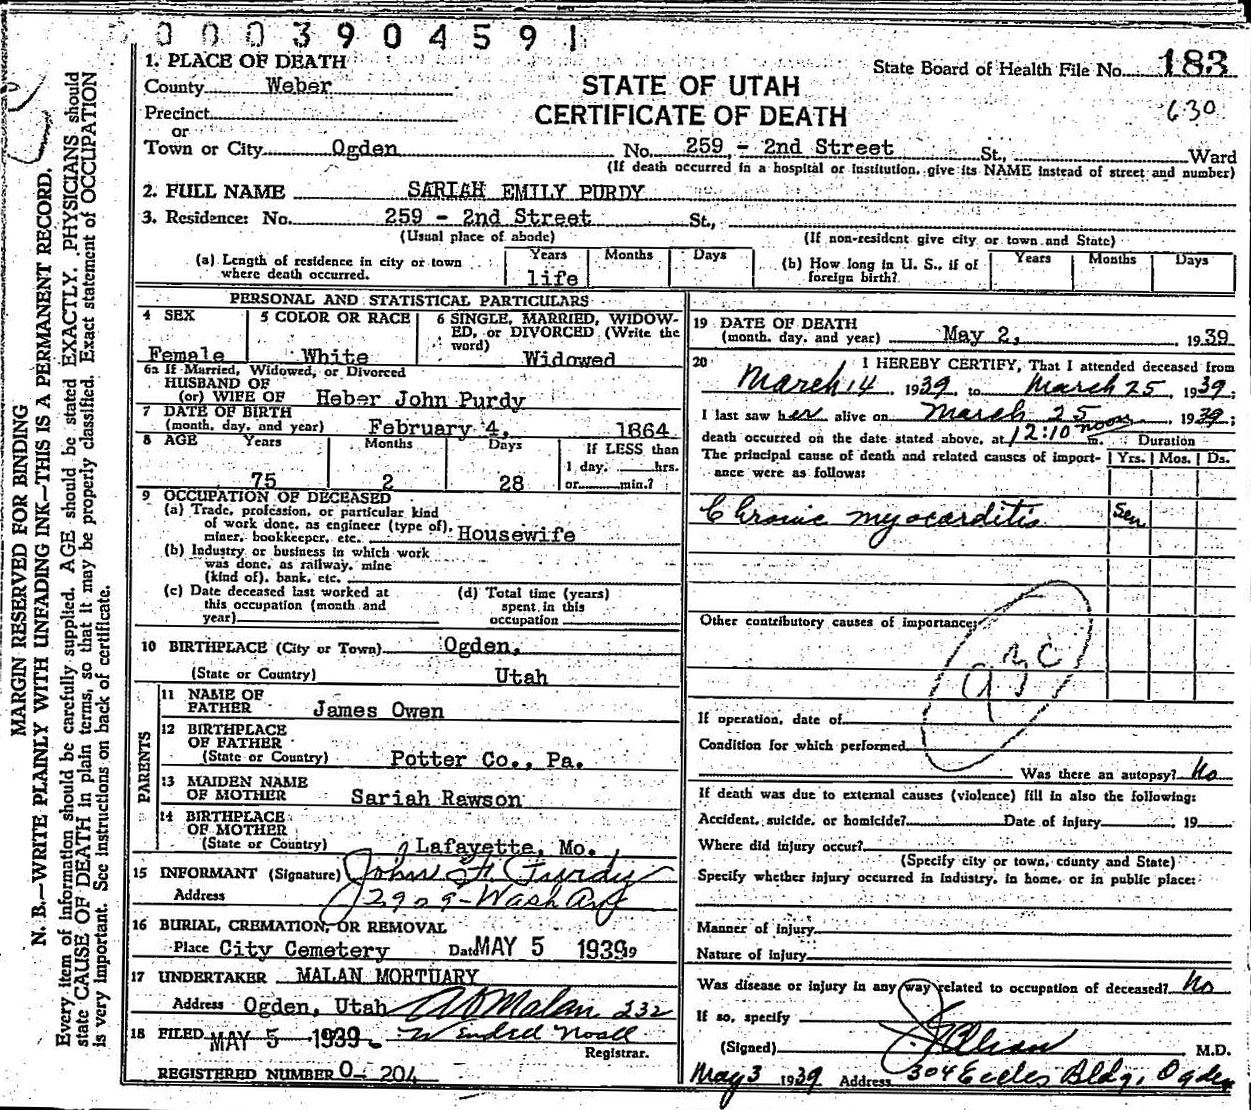 0003904591
1. PLACE OF DEATH
County Weber
State Board of Health File No. 183
STATE OF UTAH
630
Precinct
CERTIFICATE OF DEATH
or
Town or City Ogden No. 259 - 2nd Street St., Ward
(If death occurred in a hospital or institution, give its NAME instead of street and number)
2. FULL NAME SARIAH EMILY PURDY
3. Residence: No. 259 - 2nd Street St.,
(Usual place of abode) (If non-resident give city or town and State)
(a) Length of residence in city or town where death occurred. Years life Months Days
(b) How long in U. S., if of foreign birth? Years Months Days
PERSONAL AND STATISTICAL PARTICULARS
4 SEX Female
5 COLOR OR RACE White
6 SINGLE, MARRIED, WIDOW-
ED, or DIVORCED (Write the
word) Widowed
6a If Married, Widowed, or Divorced
HUSBAND OF
(or) WIFE OF Heber John Purdy
7 DATE OF BIRTH
(month, day, and year) February 4, 1864
8 AGE Years Months Days If LESS than
1 day, hrs.
75 2 28 or min.?
9 OCCUPATION OF DECEASED
(a) Trade, profession, or particular kind
of work done, as engineer (type of),
miner, bookkeeper, etc. Housewife
(b) Industry or business in which work
was done, as railway, mine
(kind of), bank, etc.
(c) Date deceased last worked at
this occupation (month and
year)
(d) Total time (years)
spent in this
occupation
10 BIRTHPLACE (City or Town) Ogden,
(State or Country) Utah
PARENTS
11 NAME OF
FATHER James Owen
12 BIRTHPLACE
OF FATHER
(State or Country) Potter Co., Pa.
13 MAIDEN NAME
OF MOTHER Sariah Rawson
14 BIRTHPLACE
OF MOTHER
(State or Country) Lafayette, Mo.
15 INFORMANT (Signature) John H. Purdy
Address 2909 - Wash Ave
16 BURIAL, CREMATION, OR REMOVAL
Place City Cemetery Date MAY 5 1939
17 UNDERTAKER MALAN MORTUARY
Address Ogden, Utah Malan 232
18 FILED MAY 5 1939 Wendell Noall
Registrar.
REGISTERED NUMBER 0- 204
19 DATE OF DEATH
(month, day, and year) May 2, 1939
20 I HEREBY CERTIFY, That I attended deceased from
March 14 1939 to March 25, 1939;
I last saw her alive on March 25, 1939;
death occurred on the date stated above, at 12:10 noon m. Duration
The principal cause of death and related causes of import-
ance were as follows: Yrs. Mos. Ds.
Chronic myocarditis Sev
Other contributory causes of importance:
93c
If operation, date of
Condition for which performed
Was there an autopsy? No
If death was due to external causes (violence) fill in also the following:
Accident, suicide, or homicide? Date of injury , 19
Where did injury occur?
(Specify city or town, county and State)
Specify whether injury occurred in industry, in home, or in public place:
Manner of injury
Nature of injury
Was disease or injury in any way related to occupation of deceased? No
If so, specify
(Signed) M.D.
May 3 1939 Address 304 Eccles Bldg, Ogden
MARGIN RESERVED FOR BINDING
N. B.—WRITE PLAINLY WITH UNFADING INK—THIS IS A PERMANENT RECORD.
Every item of information should be carefully supplied. AGE should be stated EXACTLY. PHYSICIANS should
state CAUSE OF DEATH in plain terms, so that it may be properly classified. Exact statement of OCCUPATION
is very important. See instructions on back of certificate.